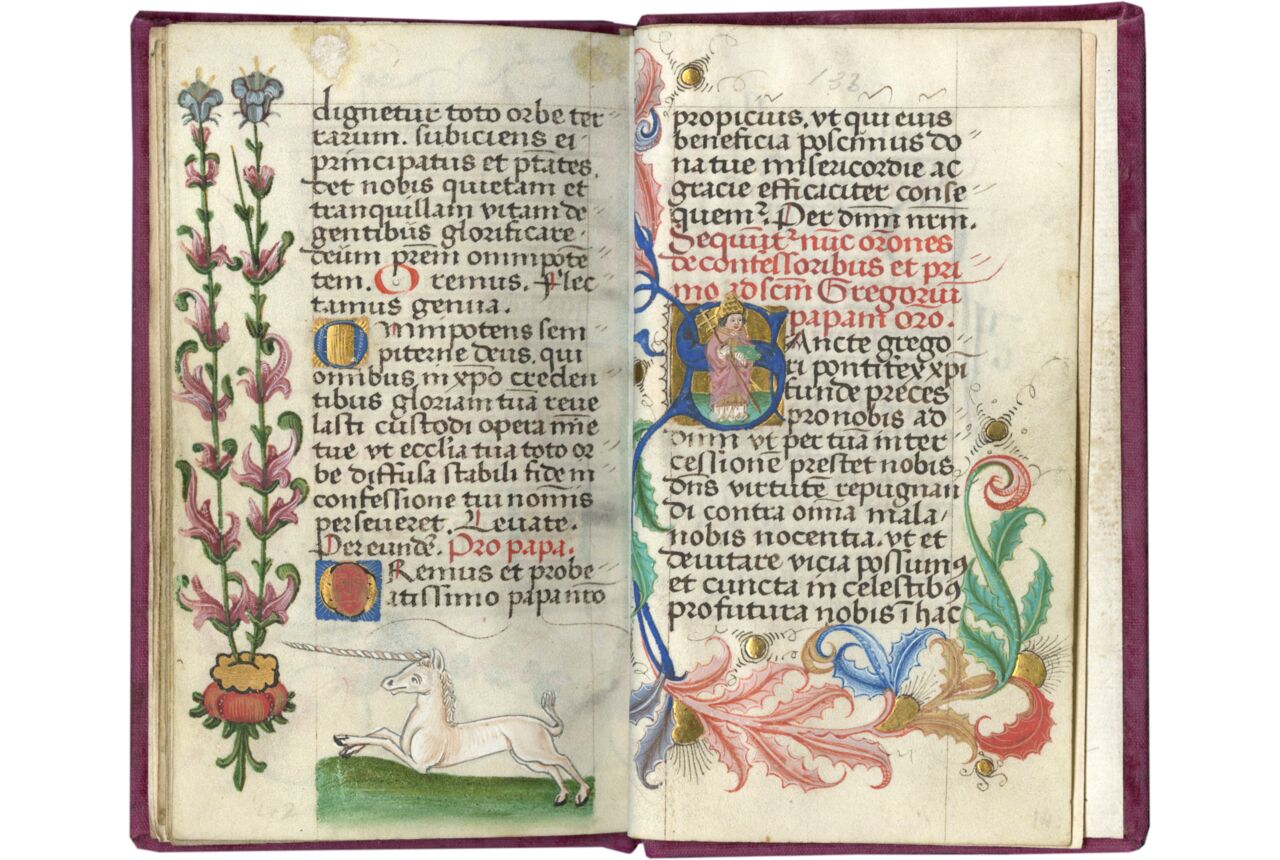 dignetur toto orbe ter
rarum. subiciens ei
principatus et ptātes.
det nobis quietam et
tranquillam vitam de
gentibus glorificare
deum prēm omnipotē
tem. Oremus. Flec
tamus genua.
Omnipotens sem
piterne deus, qui
omnibus in xpo creden
tibus gloriam tuā reve
lasti custodi opera mīe
tue vt ecclīa tua toto or
be diffusa stabili fide in
confessione tui nomīs
perseueret. Leuate.
Per eundē. Pro papa.
Oremus et pro be
atissimo papa nr̄o
133
propicius. vt qui eius
beneficia poscimus do
na tue misericordie ac
gracie efficaciter conse
quemr̄. Per dnm nrm.
Sequūtr̄ nūc orōnes
de confessoribus et pri
mo ad scm̄ Gregoriū
papam oro.
SAncte grego
ri pontifex xpī
funde preces
pro nobis ad
dnm vt per tuā inter
cessionē prestet nobis
dns virtutē repugnan
di contra omīa mala
nobis nocentia. vt et
deuitare vicia possimꝯ
et cuncta in celestibꝯ
profutura nobis ī hac